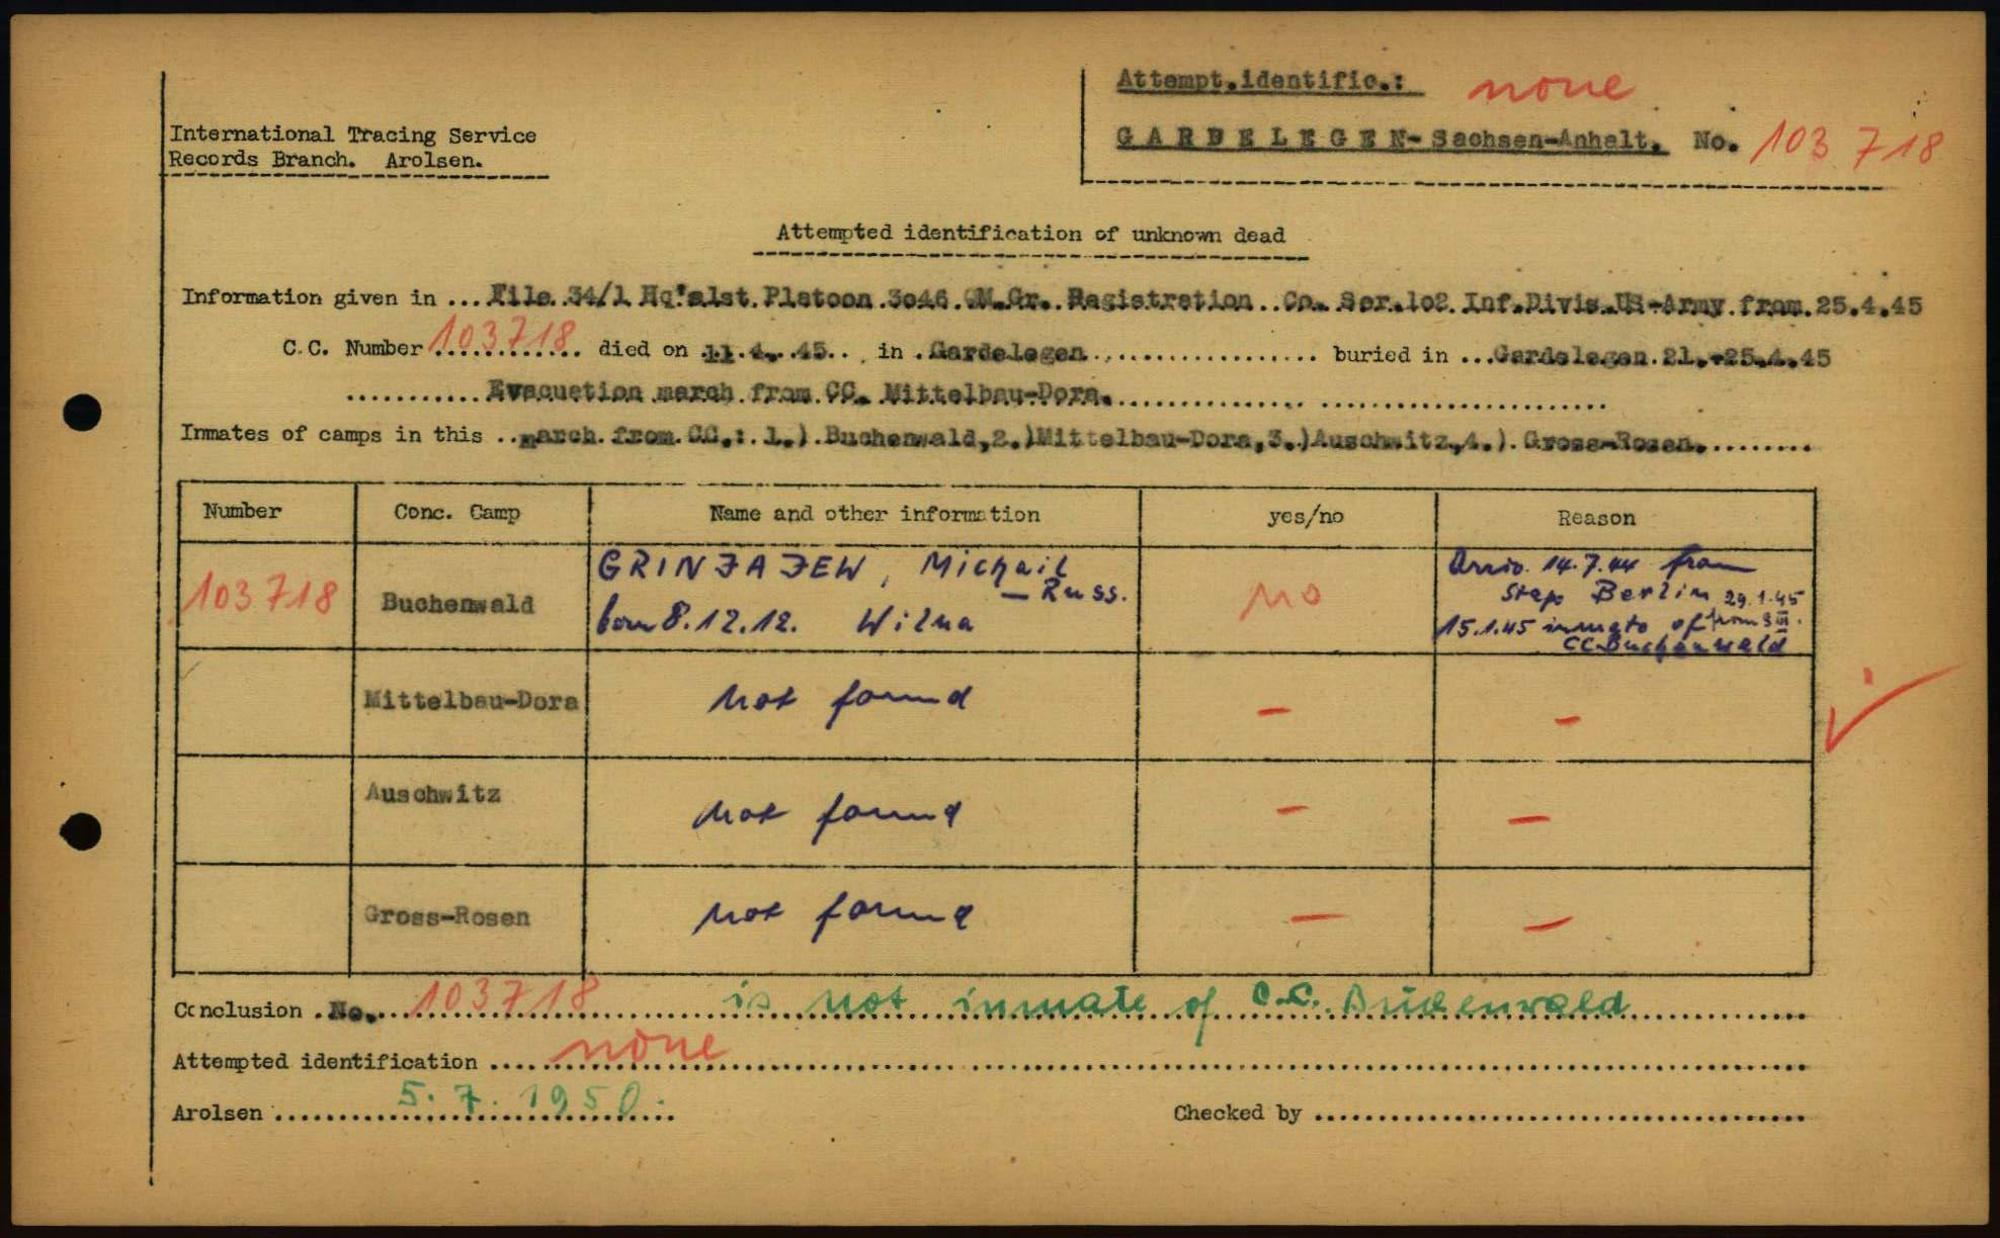 Attempt.identific.: none
International Tracing Service
Records Branch. Arolsen.
GARDELEGEN-Sachsen-Anhalt. No. 103 718
Attempted identification of unknown dead
Information given in ...File.34/1 Hq'alst.Platoon.3046.QM.Gr..Registration..Co..Ser.102.Inf.Divis.US-Army.from.25.4.45
C.C. Number 103718 died on 11.4..45.. in .Gardelegen................... buried in ...Gardelegen.21.-25.4.45
...........Evacuation march.from.CC..Mittelbau-Dora...................................
Inmates of camps in this ..march.from.CC.:.1.).Buchenwald,2.)Mittelbau-Dora,3.)Auschwitz,4.).Gross-Rosen.........
Number Conc. Camp Name and other information yes/no Reason
103718 Buchenwald GRINJAJEW, Michail no
— Russ.
born 8.12.12. Wilna
14.7.44 from
Berlin 29.1.45
15.1.45 inmate of from S III.
CC.Buchenwald
Mittelbau-Dora not found — —
Auschwitz not found — —
Gross-Rosen not found — —
Conclusion .No. 103718 is not inmate of C.C. Buchenwald
Attempted identification .... none
Arolsen 5.7.1950.
Checked by ........................................